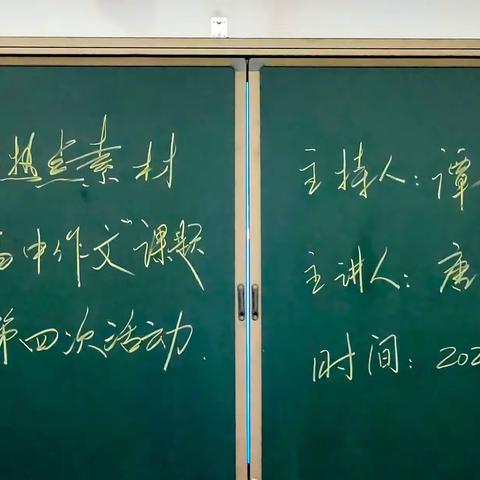 热点素材
高中作文"课题
第四次活动.
主持人:谭
主讲人:唐
时间:202